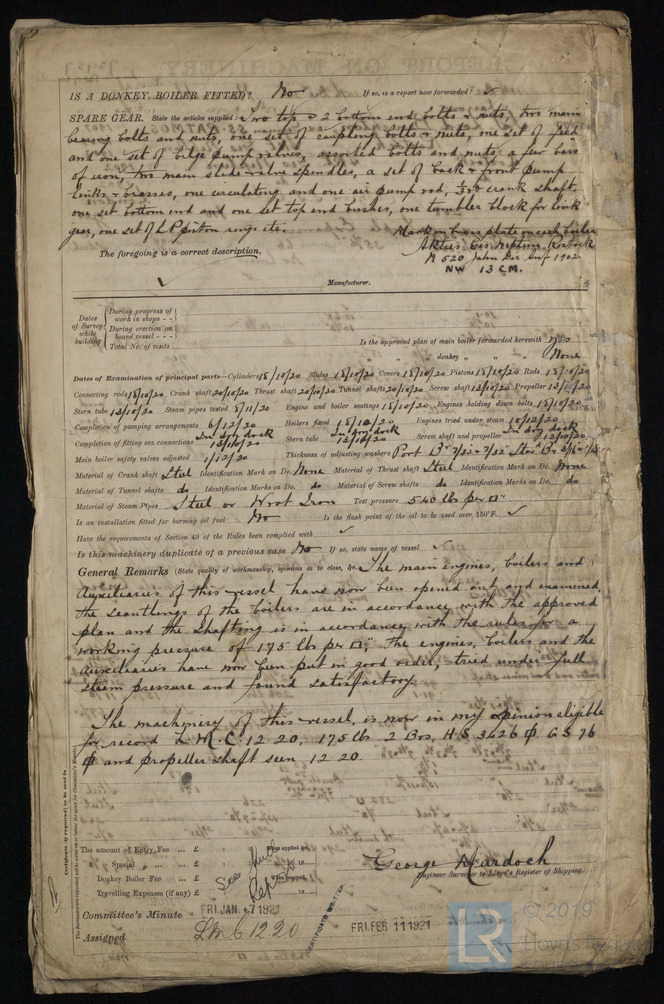 IS A DONKEY BOILER FITTED? No If so, is a report now forwarded? ✓
SPARE GEAR. State the articles supplied:- Two top & 2 bottom end bolts & nuts, two main
bearing bolts and nuts, one set of coupling bolts & nuts, one set of feed
and one set of bilge pump valves, assorted bolts and nuts, a few bars
of iron, two main slide valve spindles, a set of back & front pump
links & brasses, one circulating and one air pump rod, crank shaft,
one set bottom end and one set top end bushes, one tumbler block for link
gear, one set of L.P. piston rings etc. Mark on brass plate on each boiler
Neptun, Rostock
The foregoing is a correct description, No 520 1902
NW 13 CM.
✓ Manufacturer.
Dates of Survey while building
During progress of work in shops - -
During erection on board vessel - - -
Total No. of visits
Is the approved plan of main boiler forwarded herewith Yes
" " " donkey " " None
Dates of Examination of principal parts—Cylinders 18/10/20 Slides 18/10/20 Covers 18/10/20 Pistons 18/10/20 Rods 18/10/20
Connecting rods 18/10/20 Crank shaft 20/10/20 Thrust shaft 20/10/20 Tunnel shafts 20/10/20 Screw shaft 13/10/20 Propeller 13/10/20
Stern tube 13/10/20 Steam pipes tested 8/11/20 Engine and boiler seatings 18/10/20 Engines holding down bolts 18/10/20
Completion of pumping arrangements 6/12/20 Boilers fixed 18/10/20 Engines tried under steam 10/12/20
Completion of fitting sea connections In dry dock 13/10/20 Stern tube In dry dock 13/10/20 Screw shaft and propeller In dry dock 13/10/20
Main boiler safety valves adjusted 1/12/20 Thickness of adjusting washers Port Star
Material of Crank shaft Steel Identification Mark on Do. None Material of Thrust shaft Steel Identification Mark on Do. None
Material of Tunnel shafts do Identification Marks on Do. do Material of Screw shafts do Identification Marks on Do. do
Material of Steam Pipes Steel or Wrot Iron Test pressure 540 lbs per □"
Is an installation fitted for burning oil fuel No Is the flash point of the oil to be used over 150°F. ✓
Have the requirements of Section 49 of the Rules been complied with ✓
Is this machinery duplicate of a previous case No If so, state name of vessel ✓
General Remarks (State quality of workmanship, opinions as to class, &c. The main engines, boilers and
Auxiliaries of this vessel have now been opened out and examined,
the scantlings of the boilers are in accordance with the approved
plan and the shafting is in accordance with the rules for a
working pressure of 175 lbs per □", the engines, boilers and the
auxiliaries have now been put in good order, tried under full
steam pressure and found satisfactory.
The machinery of this vessel, is now in my opinion eligible
for record L.M.C. 12-20, 175 lbs 2 Bos, H.S. 3426 ϕ G.S 76
ϕ and propeller shaft seen 12-20.
The amount of Entry Fee ... £ : : When applied for,
Special ... ... £ : : 19
Donkey Boiler Fee ... £ : : When received,
Travelling Expenses (if any) £ : : 19
See Report
George Murdoch
Engineer Surveyor to Lloyd's Register of Shipping.
Committee's Minute FRI. JAN. 7 1921 FRI. FEB 11 1921
Assigned LMC 12.20
CERTIFICATE WRITTEN
Certificate (if required) to be sent to
The Surveyors are requested not to write on or below the space for Committee's Minute.
LR © 2019
Lloyd's Register
Foundation